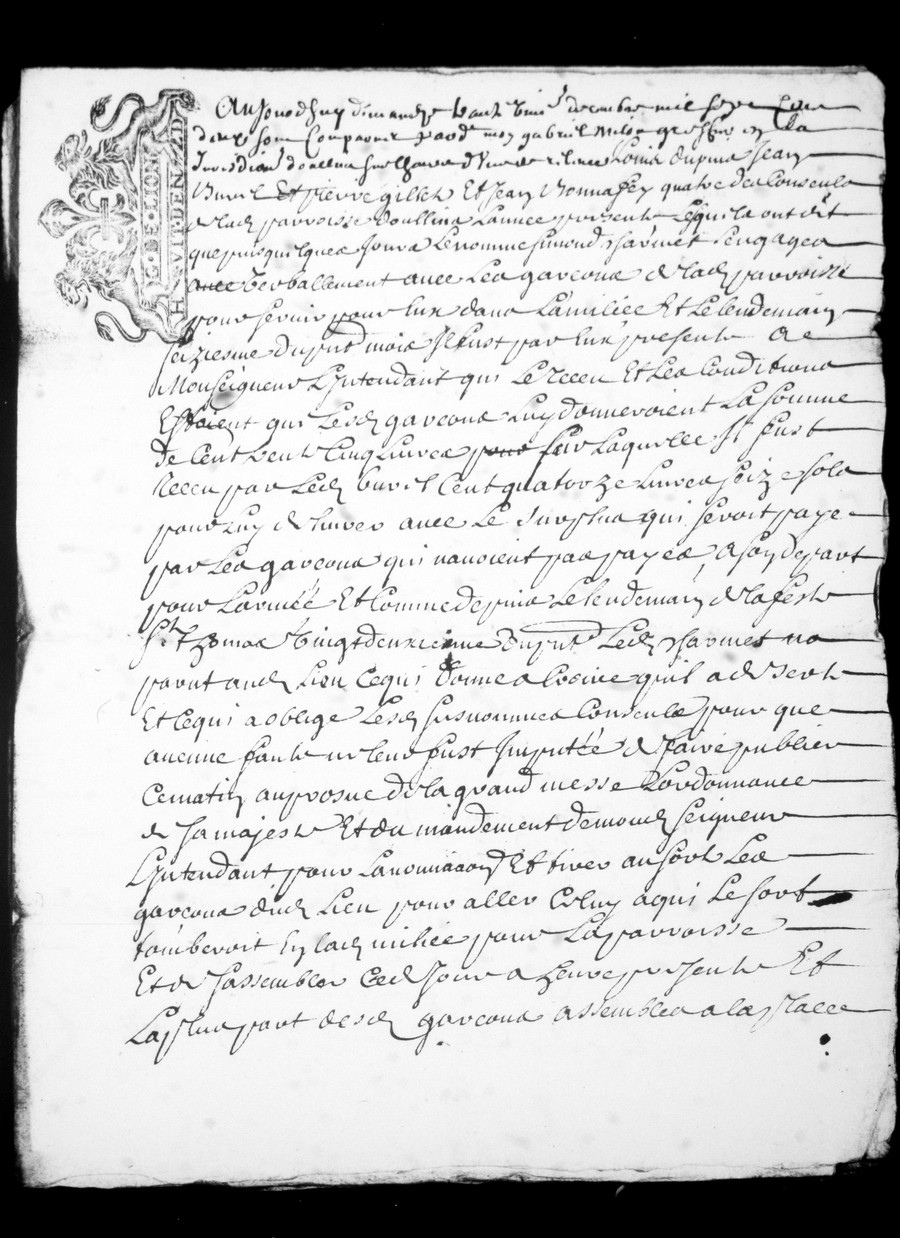 G. DE. LION
HVIT. DEN
Aujourdhuy dimanche vint decembre mil sept Cens
sont Comparus pard. moy gabriel greffier en La
Jurisdiction doullins Louis dupuis Jean
Buvil Et pierre gillet Et Jean Bonnafey quatre des Consculs
de lad parroisse doullins Lannee presente Lesquels ont dit
que puis quelques Jours Le nomme simond charmet sengagea
avec verballement avec Les garcons de lad parroisse
pour servir pour Eux dans La milice Et Le lendemain
seiziesme du pnt mois Il fust par Eux presente a
Monseigneur LIntendant qui Le receu Et Les Conditions
Estoient que Lesd garcons Luy donneroient La somme
de Cent vent Cinq Livres pour sur Laquelle Il fust
receu par Led buvil Cent quatorze Livres seize sols
pour Luy delivrer avec Le surplus qui seroit paye
par Les garcons qui navoient pas payes, a son depart
pour Larmée Et Comme depuis Le lendemain de la feste
st thomas vingt deuxieme du pnt Led charmet na
parut aud Lieu Ce qui donne a Croire quil a deserte
Et Ce qui a oblige Lesd susnommes Consculs pour que
aucune faute ne leur fust Imputée de faire publier
Ce matin au prosne de la grand messe Lordonnance
de sa majeste Et du mandement de mond seigneur
LIntendant pour La nomination Et tirer au sort Les
garcons dud Lieu pour aller Celuy a qui Le sort
tomberoit En lad milice pour La parroisse
Et de sassembler Ced Jour a heure presente Et
La plus part desd garcons assembles a la place